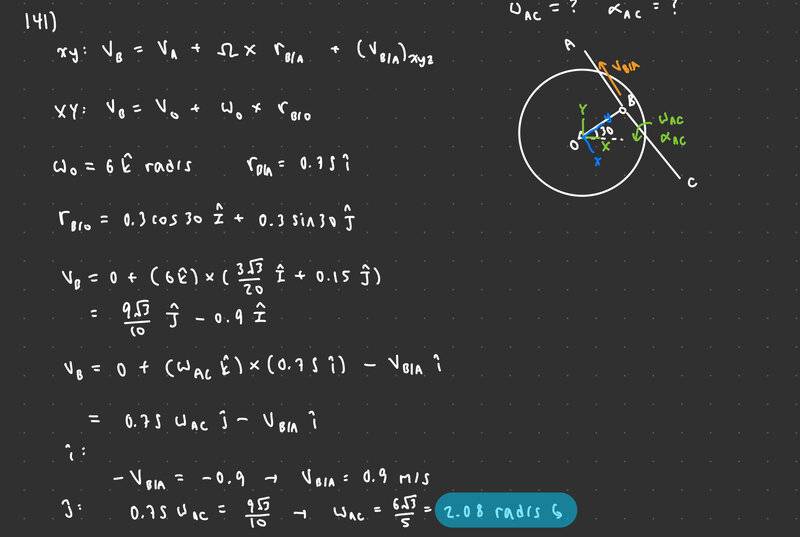 ω_AC = ? α_AC = ?
141)
xy: V_B = V_A + Ω × r_B/A + (V_B/A)_xyz
XY: V_B = V_O + ω_O × r_B/O
ω_O = 6 k̂ rad/s r_B/A = 0.75 î
r_B/O = 0.3 cos 30 Î + 0.3 sin 30 Ĵ
V_B = 0 + (6k̂) × (3√3/20 Î + 0.15 Ĵ)
= 9√3/10 Ĵ - 0.9 Î
V_B = 0 + (ω_AC k̂) × (0.75 î) - V_B/A î
= 0.75 ω_AC ĵ - V_B/A î
î:
-V_B/A = -0.9 → V_B/A = 0.9 m/s
ĵ: 0.75 ω_AC = 9√3/10 → ω_AC = 6√3/5 = 2.08 rad/s ↺
A
V_B/A
B
Y
y
ω_AC
30
O
X
α_AC
x
C